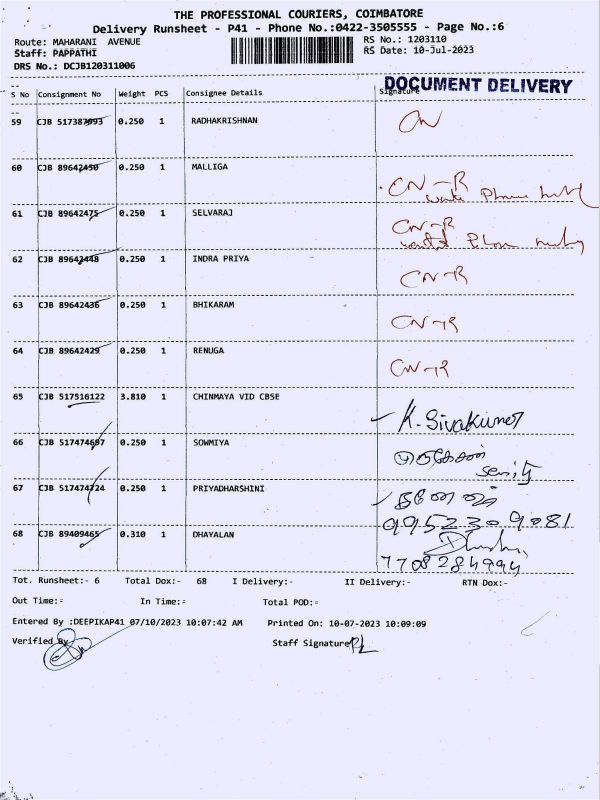 THE PROFESSIONAL COURIERS, COIMBATORE
Delivery Runsheet - P41 - Phone No.:0422-3505555 - Page No.:6
Route: MAHARANI AVENUE
RS No.: 1203110
Staff: PAPPATHI
RS Date: 10-Jul-2023
DRS No.: DCJB120311006
DOCUMENT DELIVERY
S No Consignment No Weight PCS Consignee Details Signature
59 CJB 517387993 0.250 1 RADHAKRISHNAN CN
60 CJB 89642450 0.250 1 MALLIGA CN-R
61 CJB 89642475 0.250 1 SELVARAJ CN-R
62 CJB 89642448 0.250 1 INDRA PRIYA CN-R
63 CJB 89642436 0.250 1 BHIKARAM CN-R
64 CJB 89642429 0.250 1 RENUGA CN-R
65 CJB 517516122 3.810 1 CHINMAYA VID CBSE K. Sivakumar
66 CJB 517474697 0.250 1 SOWMIYA
67 CJB 517474724 0.250 1 PRIYADHARSHINI
9952309081
68 CJB 89409465 0.310 1 DHAYALAN
7708284994
Tot. Runsheet:- 6 Total Dox:- 68 I Delivery:- II Delivery:- RTN Dox:-
Out Time:= In Time:= Total POD:=
Entered By :DEEPIKAP41 07/10/2023 10:07:42 AM Printed On: 10-07-2023 10:09:09
Verified By Staff Signature